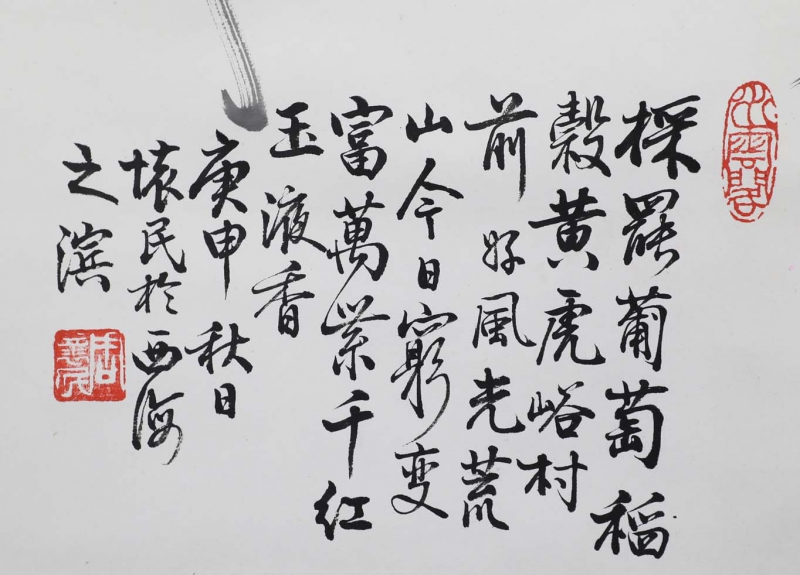 採罷葡萄稻
穀黄虎峪村
前好風光荒
山今日窮变
富萬業千红
玉液香
庚申秋日
懷民於西海
之濱